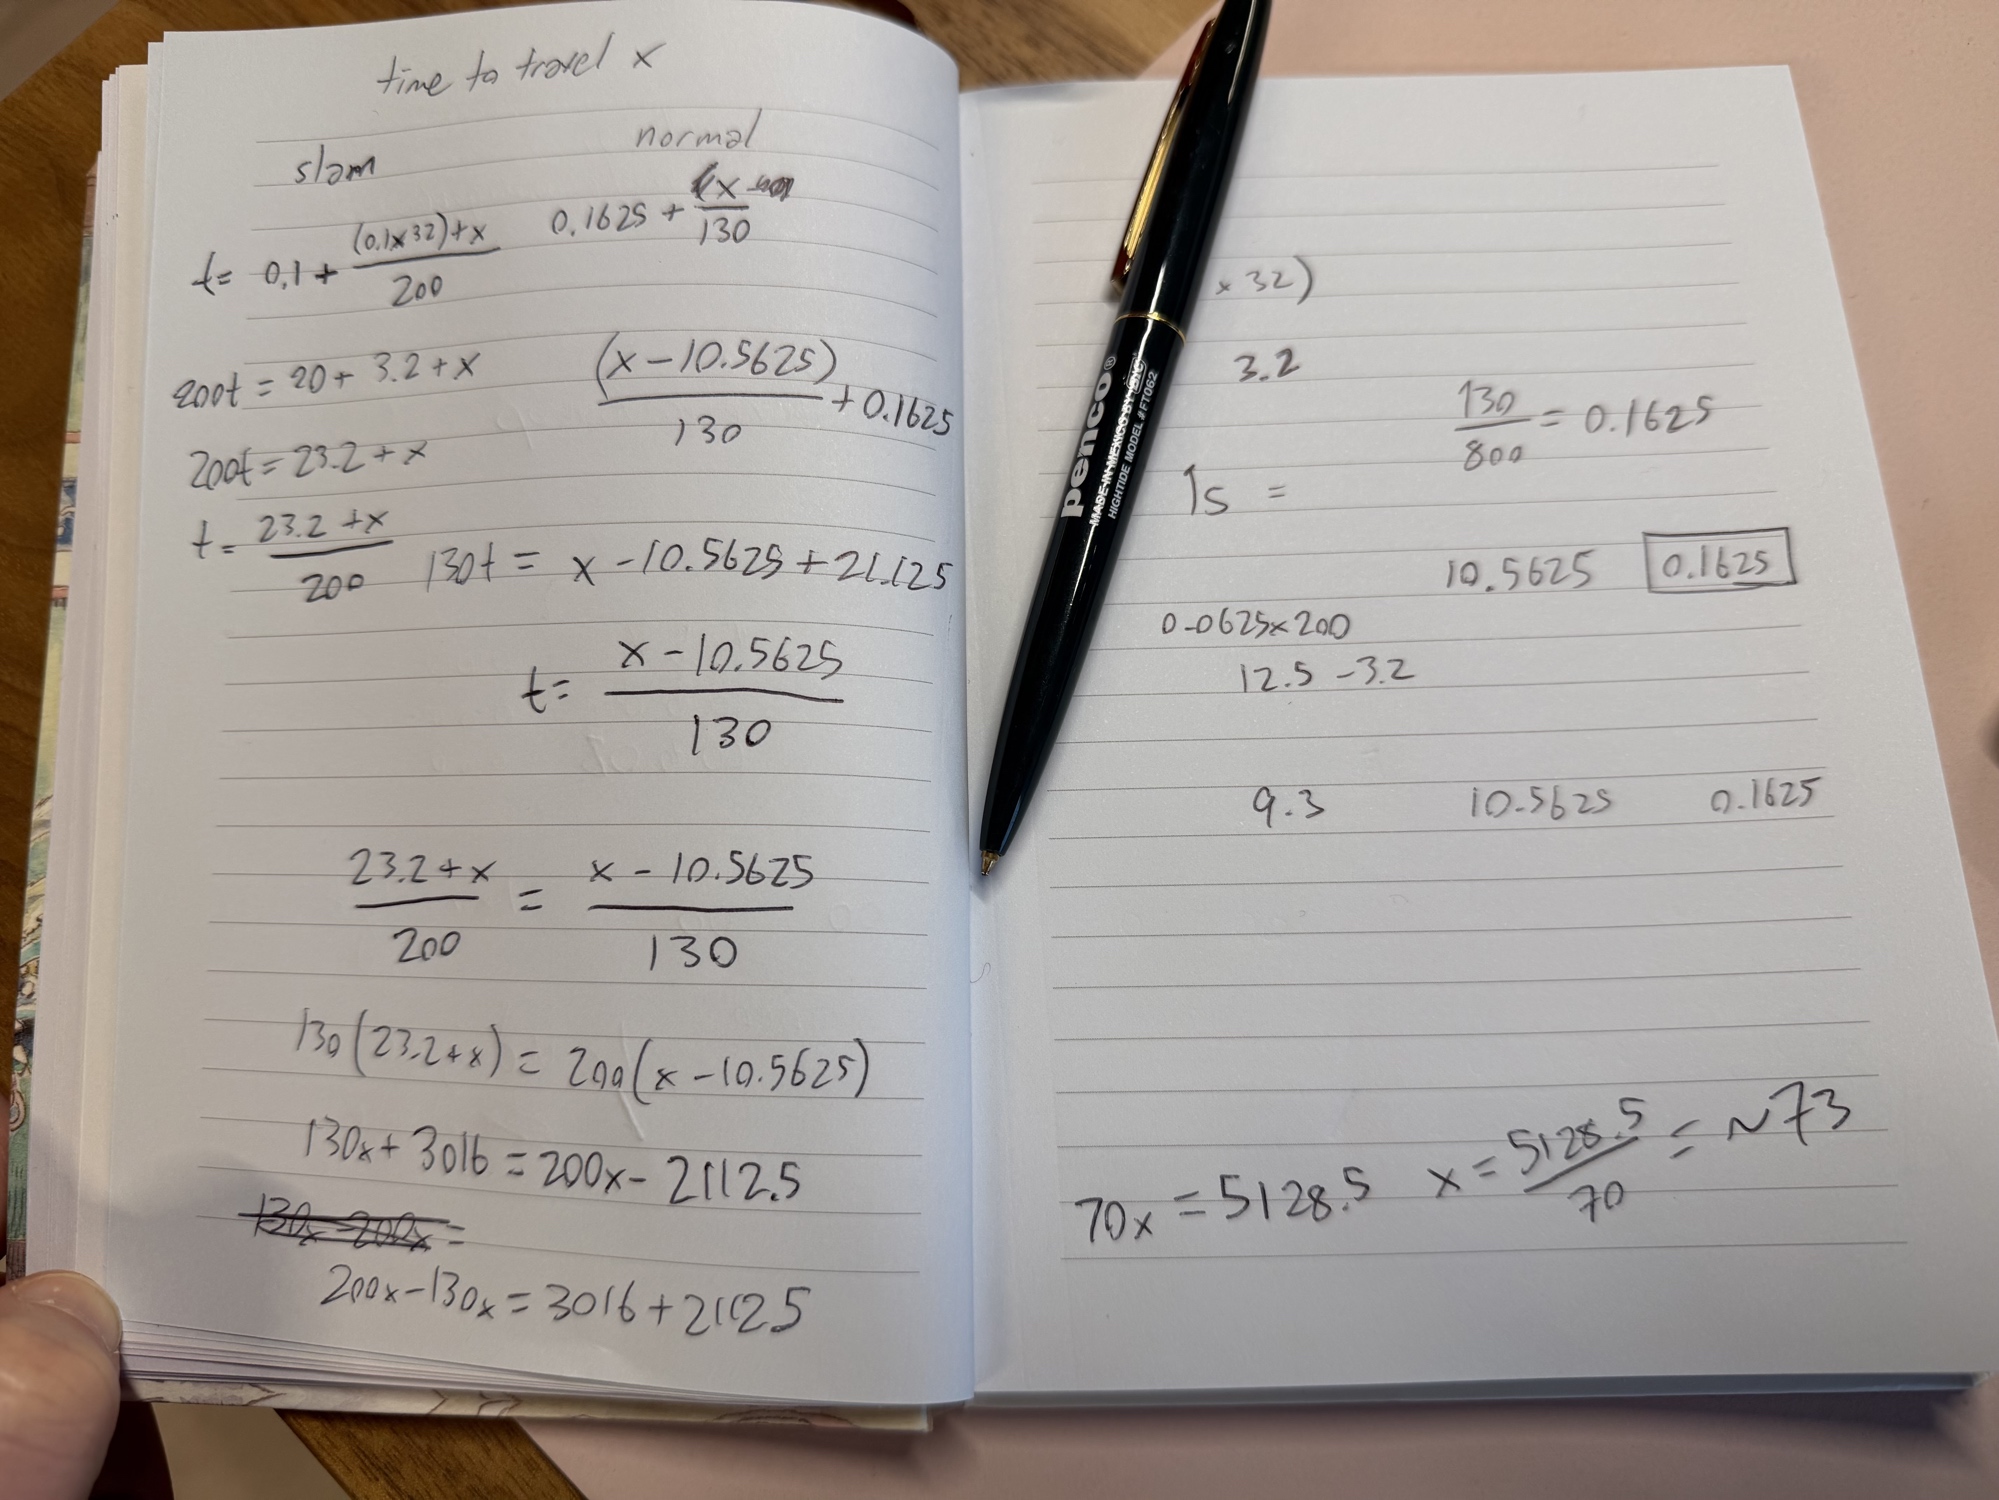 time to travel x
slam
normal
t = 0.1 + (0.1x32)+x / 200
0.1625 + x / 130
200t = 20 + 3.2 + x
(x - 10.5625) / 130 + 0.1625
200t = 23.2 + x
t = 23.2 + x / 200
130t = x - 10.5625 + 21.125
t = x - 10.5625 / 130
23.2 + x / 200 = x - 10.5625 / 130
130(23.2+x) = 200(x - 10.5625)
130x + 3016 = 200x - 2112.5
130x - 200x =
200x - 130x = 3016 + 2112.5
x 32)
3.2
130 / 800 = 0.1625
1s =
10.5625 0.1625
0.0625x200
12.5 - 3.2
9.3 10.5625 0.1625
70x = 5128.5 x = 5128.5 / 70 = ~73
penco®
MADE IN MEXICO BY BIC
HIGHTIDE MODEL #FT062